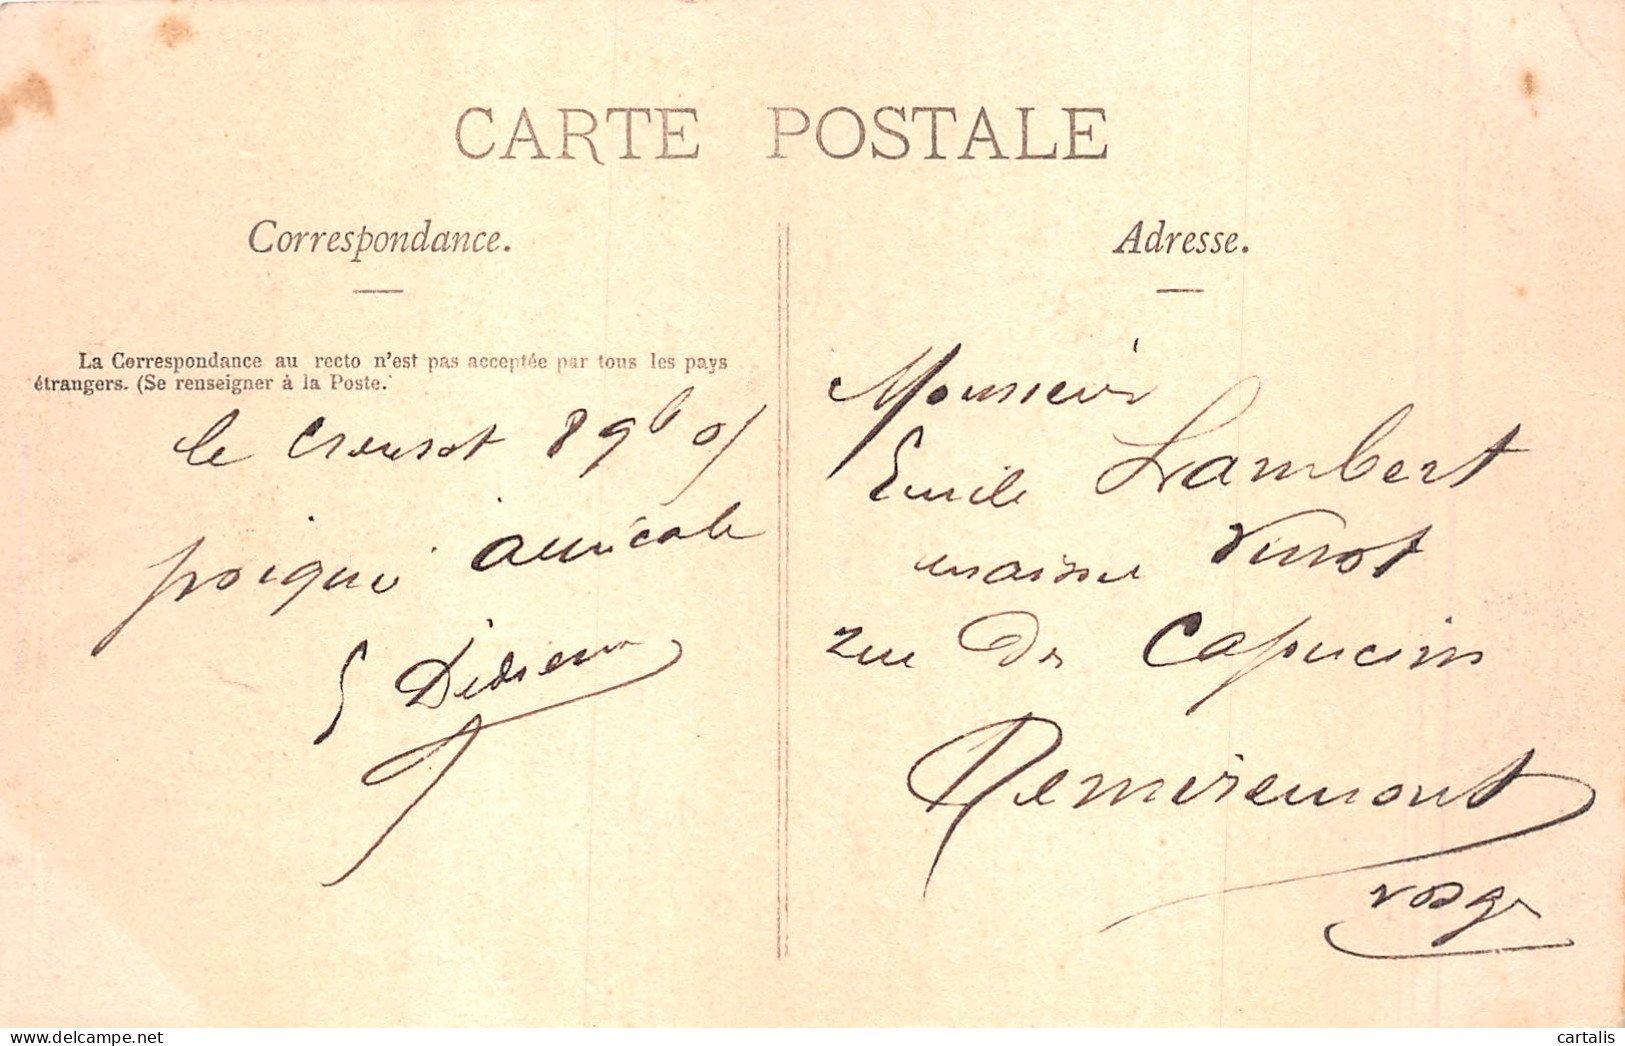 CARTE POSTALE
Correspondance.
La Correspondance au recto n'est pas acceptée par tous les pays
étrangers. (Se renseigner à la Poste.
le Creusot 8 9b 05
poigné amicale
E Didier
Adresse.
Monsieur
Emile Lambert
maison
rue des Capucins
Remiremont
Vosges
cartalis